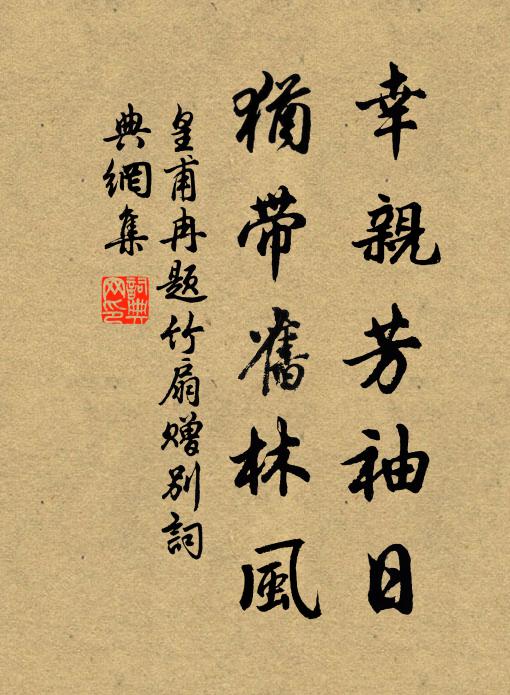 幸親芳袖日
猶帶舊林風
皇甫冉題竹扇贈別詞
典網集
詞典網印